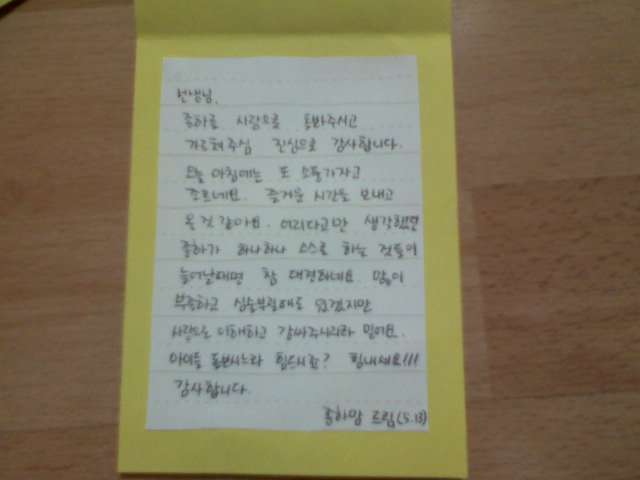 선생님.
중하를 사랑으로 돌봐주시고
가르쳐주심 진심으로 감사합니다.
오늘 아침에는 또 소풍가자고
조르네요. 즐거운 시간을 보내고
온 것 같아요. 어리다고만 생각했었던
중하가 하나하나 스스로 하는 것들이
늘어날때면 참 대견하네요. 많이
부족하고 심술부릴때도 있겠지만
사랑으로 이해하고 감싸주시리라 믿어요.
아이들 돌보시느라 힘드시죠? 힘내세요!!!
감사합니다.
중하맘 드림(5.13)